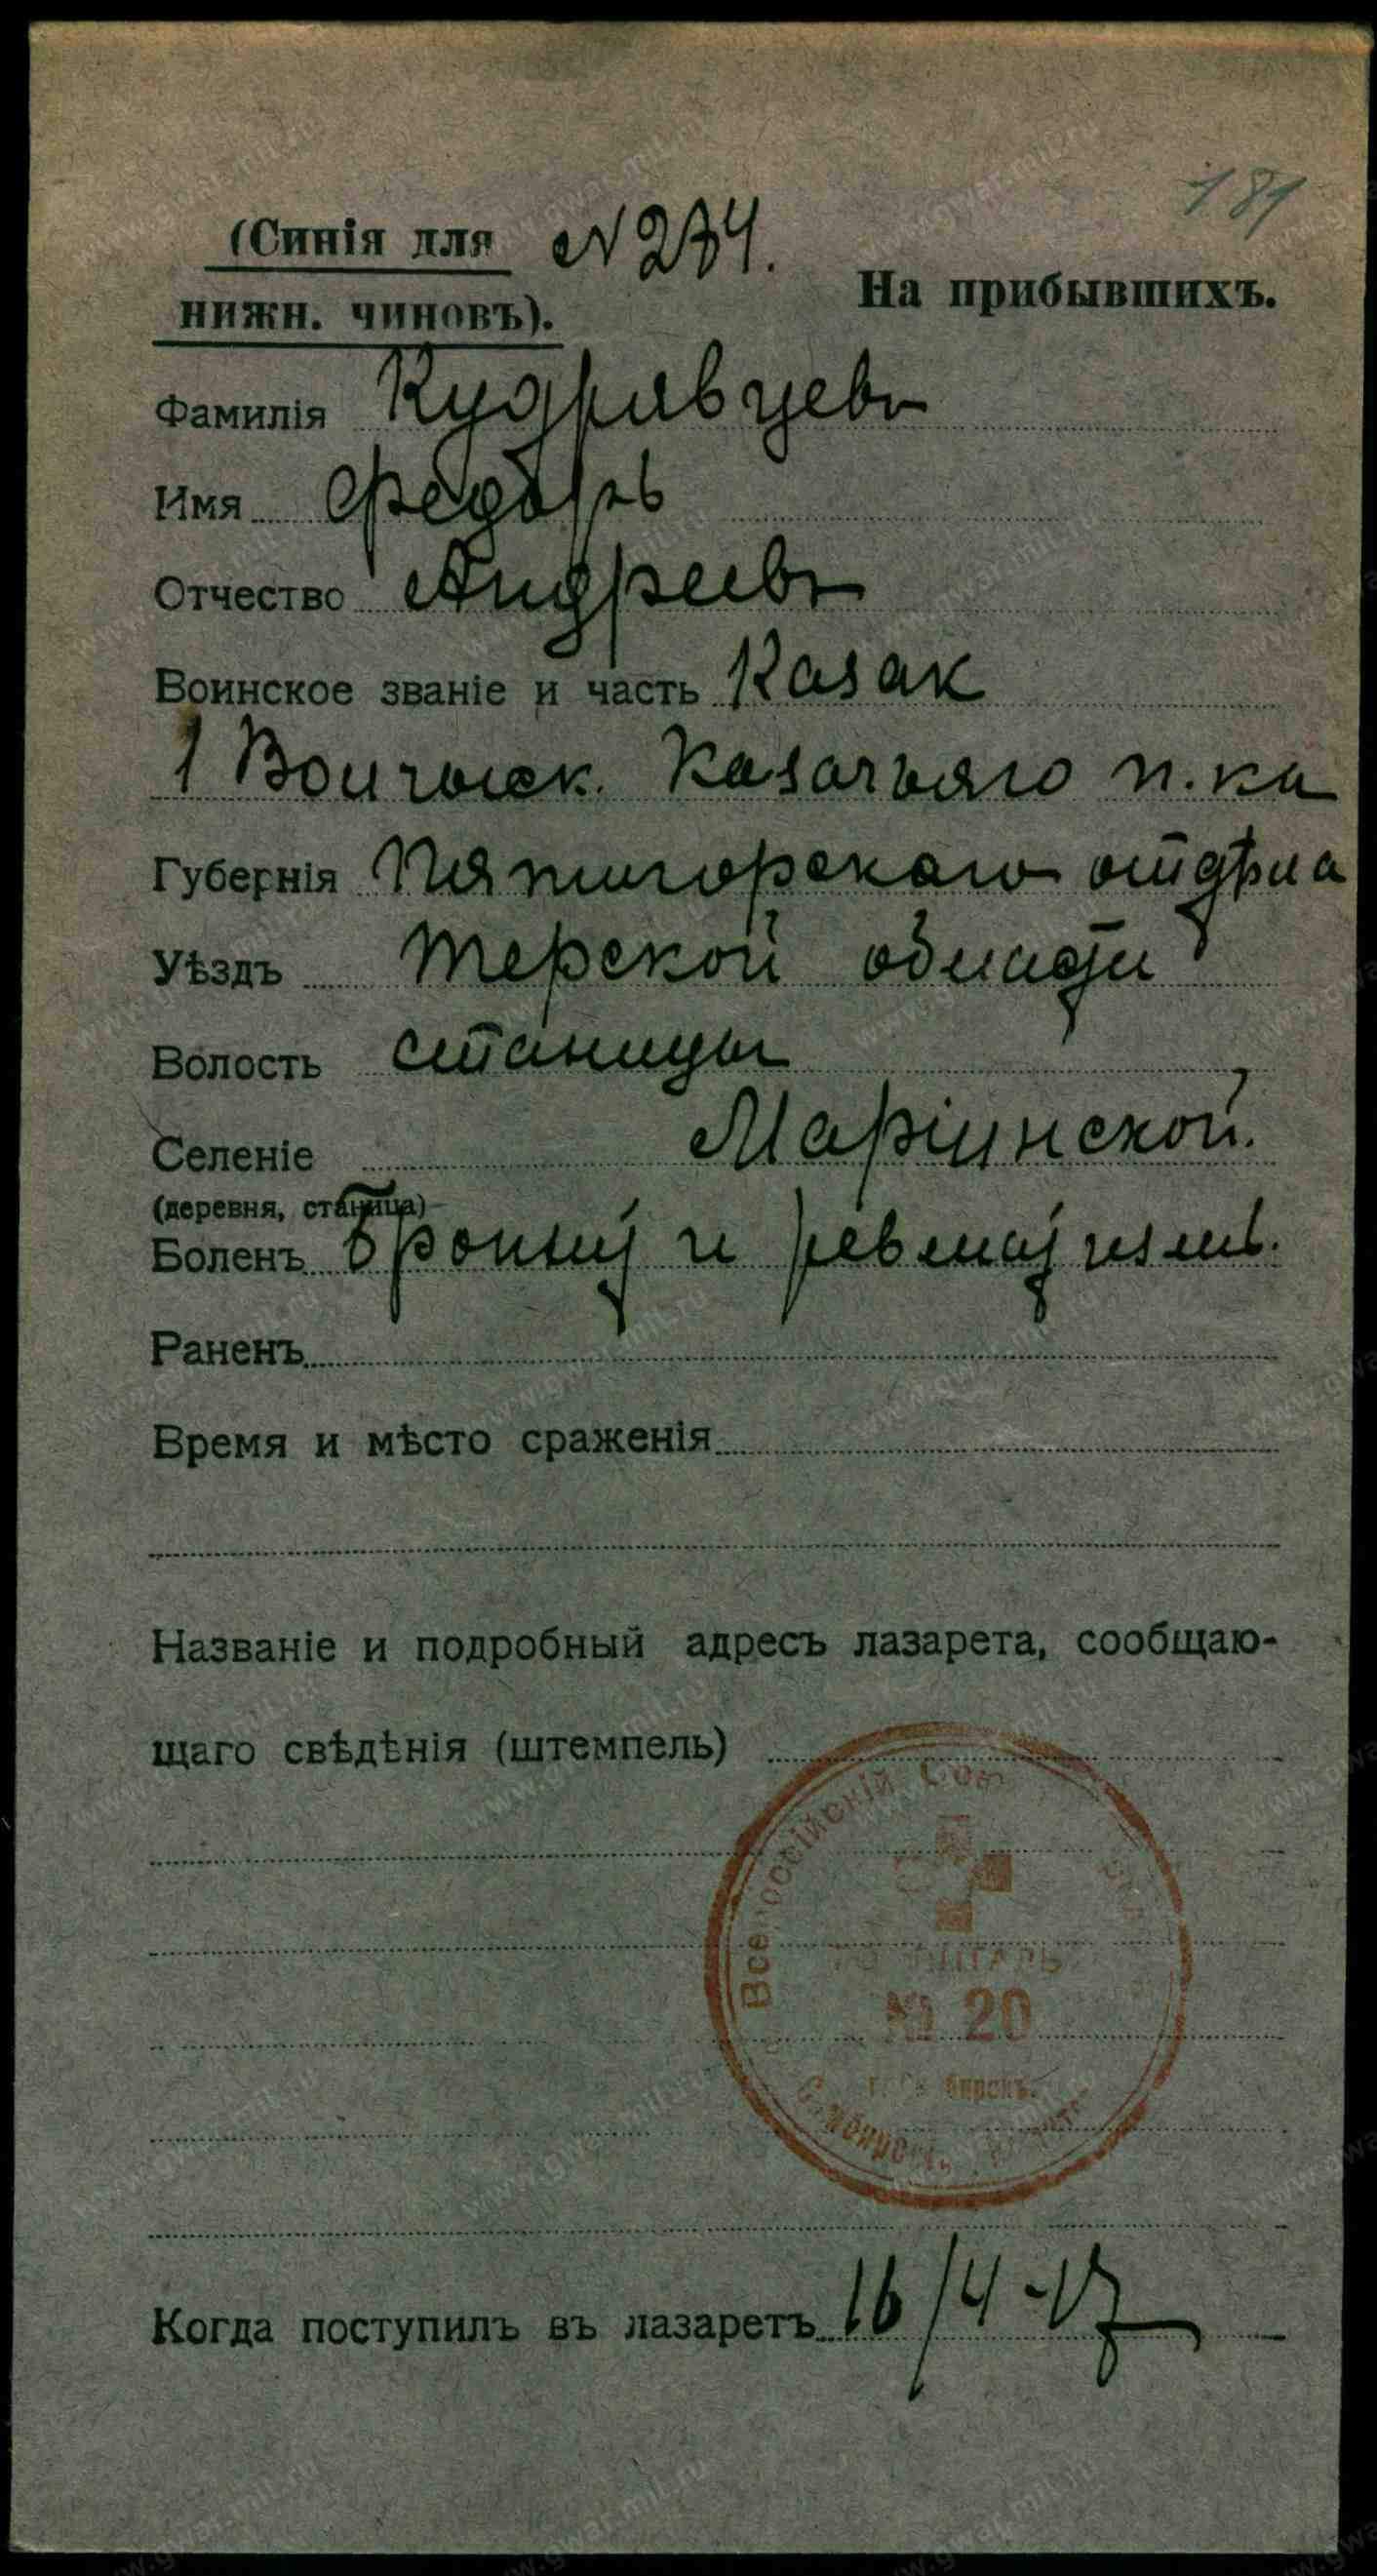 181
(Синія для № 234.
нижн. чиновъ).
На прибывшихъ.
Фамилія Кудрявцевъ
Имя Федоръ
Отчество Андреевъ
Воинское званіе и часть Казак
1 Волгыск. Казачьяго п.ка
Губернія Пятигорскаго отдѣла
Уѣздъ Терской области
Волость станицы
Селеніе Маріинской.
(деревня, станица)
Боленъ Бронхит и ревматизмъ.
Раненъ
Время и мѣсто сраженія
Названіе и подробный адресъ лазарета, сообщаю-
щаго свѣдѣнія (штемпель)
Всероссійскій Союз
ГОСПИТАЛЬ
№ 20
Когда поступилъ въ лазаретъ 16/4-17